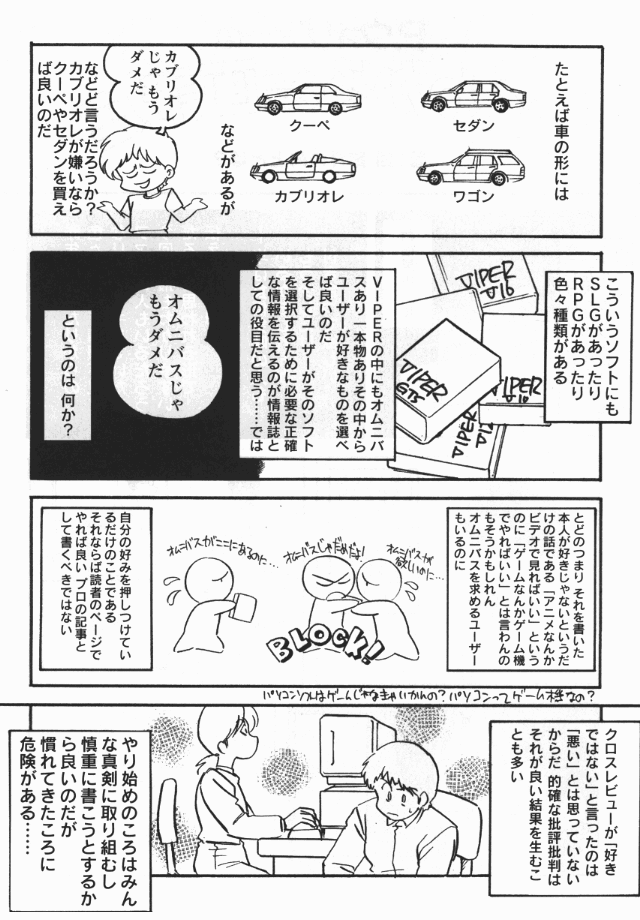 たとえば車の形には
セダン
クーペ
ワゴン
カブリオレ
などがあるが
カブリオレ
じゃ もう
ダメだ
などと言うだろうか?
カブリオレが嫌いなら
クーペやセダンを買え
ば良いのだ
こういうソフトにも
SLGがあったり
RPGがあったり
色々種類がある
VIPER
V16
VIPER
GTS
VIPER
V16
VIPER
V12
VIPERの中にもオムニバ
スあり 一本物ありその中から
ユーザーが好きなものを選べ
ば良いのだ
そしてユーザーがそのソフト
を選択するために必要な正確
な情報を伝えるのが情報誌と
しての役目だと思う……では
オムニバスじゃ
もうダメだ
というのは 何か?
とどのつまり それを書いた
本人が好きじゃないというだ
けの話である「アニメなんか
ビデオで見ればいい」という
のに「ゲームなんかゲーム機
でやればいい」とは言わんの
もそうかもしれん
オムニバスを求めるユーザー
もいるのに
オムニバスが
欲しいのに…
オムニバスじゃだめだよ!
オムニバスがここにあるのに…
BLOCK!
自分の好みを押しつけてい
るだけのことである
それならば読者のページで
やれば良い プロの記事と
して書くべきではない
パソコンソフトはゲームじゃなきゃいかんの?パソコンってゲーム機なの?
クロスレビューが「好き
ではない」と言ったのは
「悪い」とは思っていない
からだ 的確な批評批判は
それが良い結果を生むこ
とも多い
やり始めのころはみん
な真剣に取り組むし
慎重に書こうとするか
ら良いのだが
慣れてきたころに
危険がある……